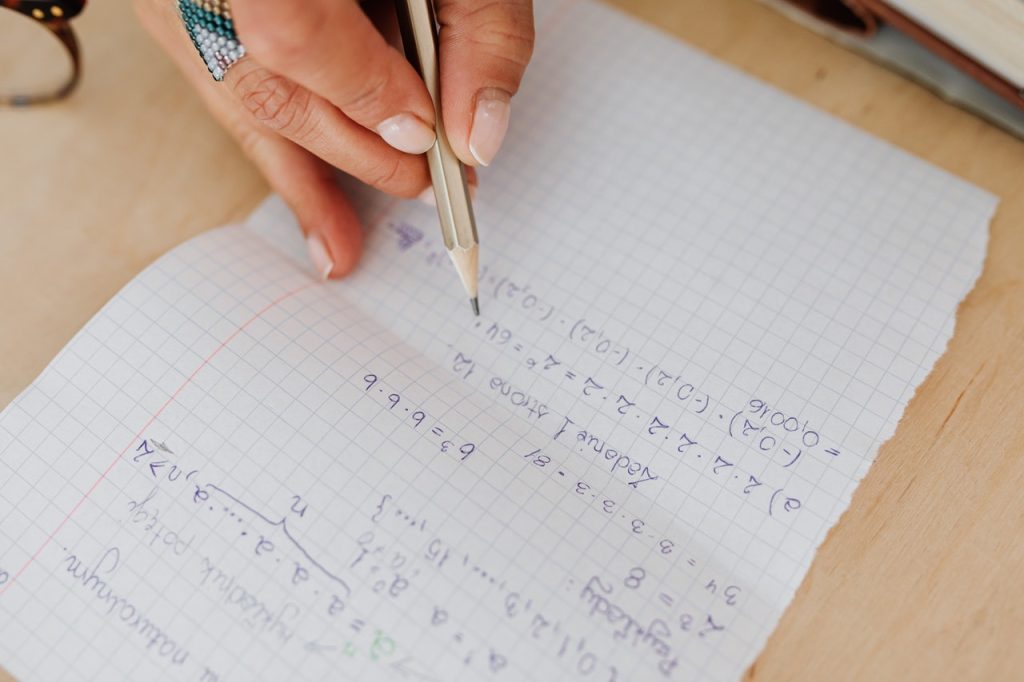 naturalnym.
wykładnik potęgi
aⁿ = a · a · a · .... · a, n ⩾ 2
n
a¹ = a
{0, 1, 2, 3, ...., 15, ....}
Przykłady:
2³ = 8
3⁴ = 3·3·3·3 = 81 b³ = b·b·b
Zadanie 1 strona 12.
a) 2·2·2·2·2·2 = 2⁶ = 64
(-0,2)·(-0,2)·(-0,2)·(-0,2)
= 0,0016